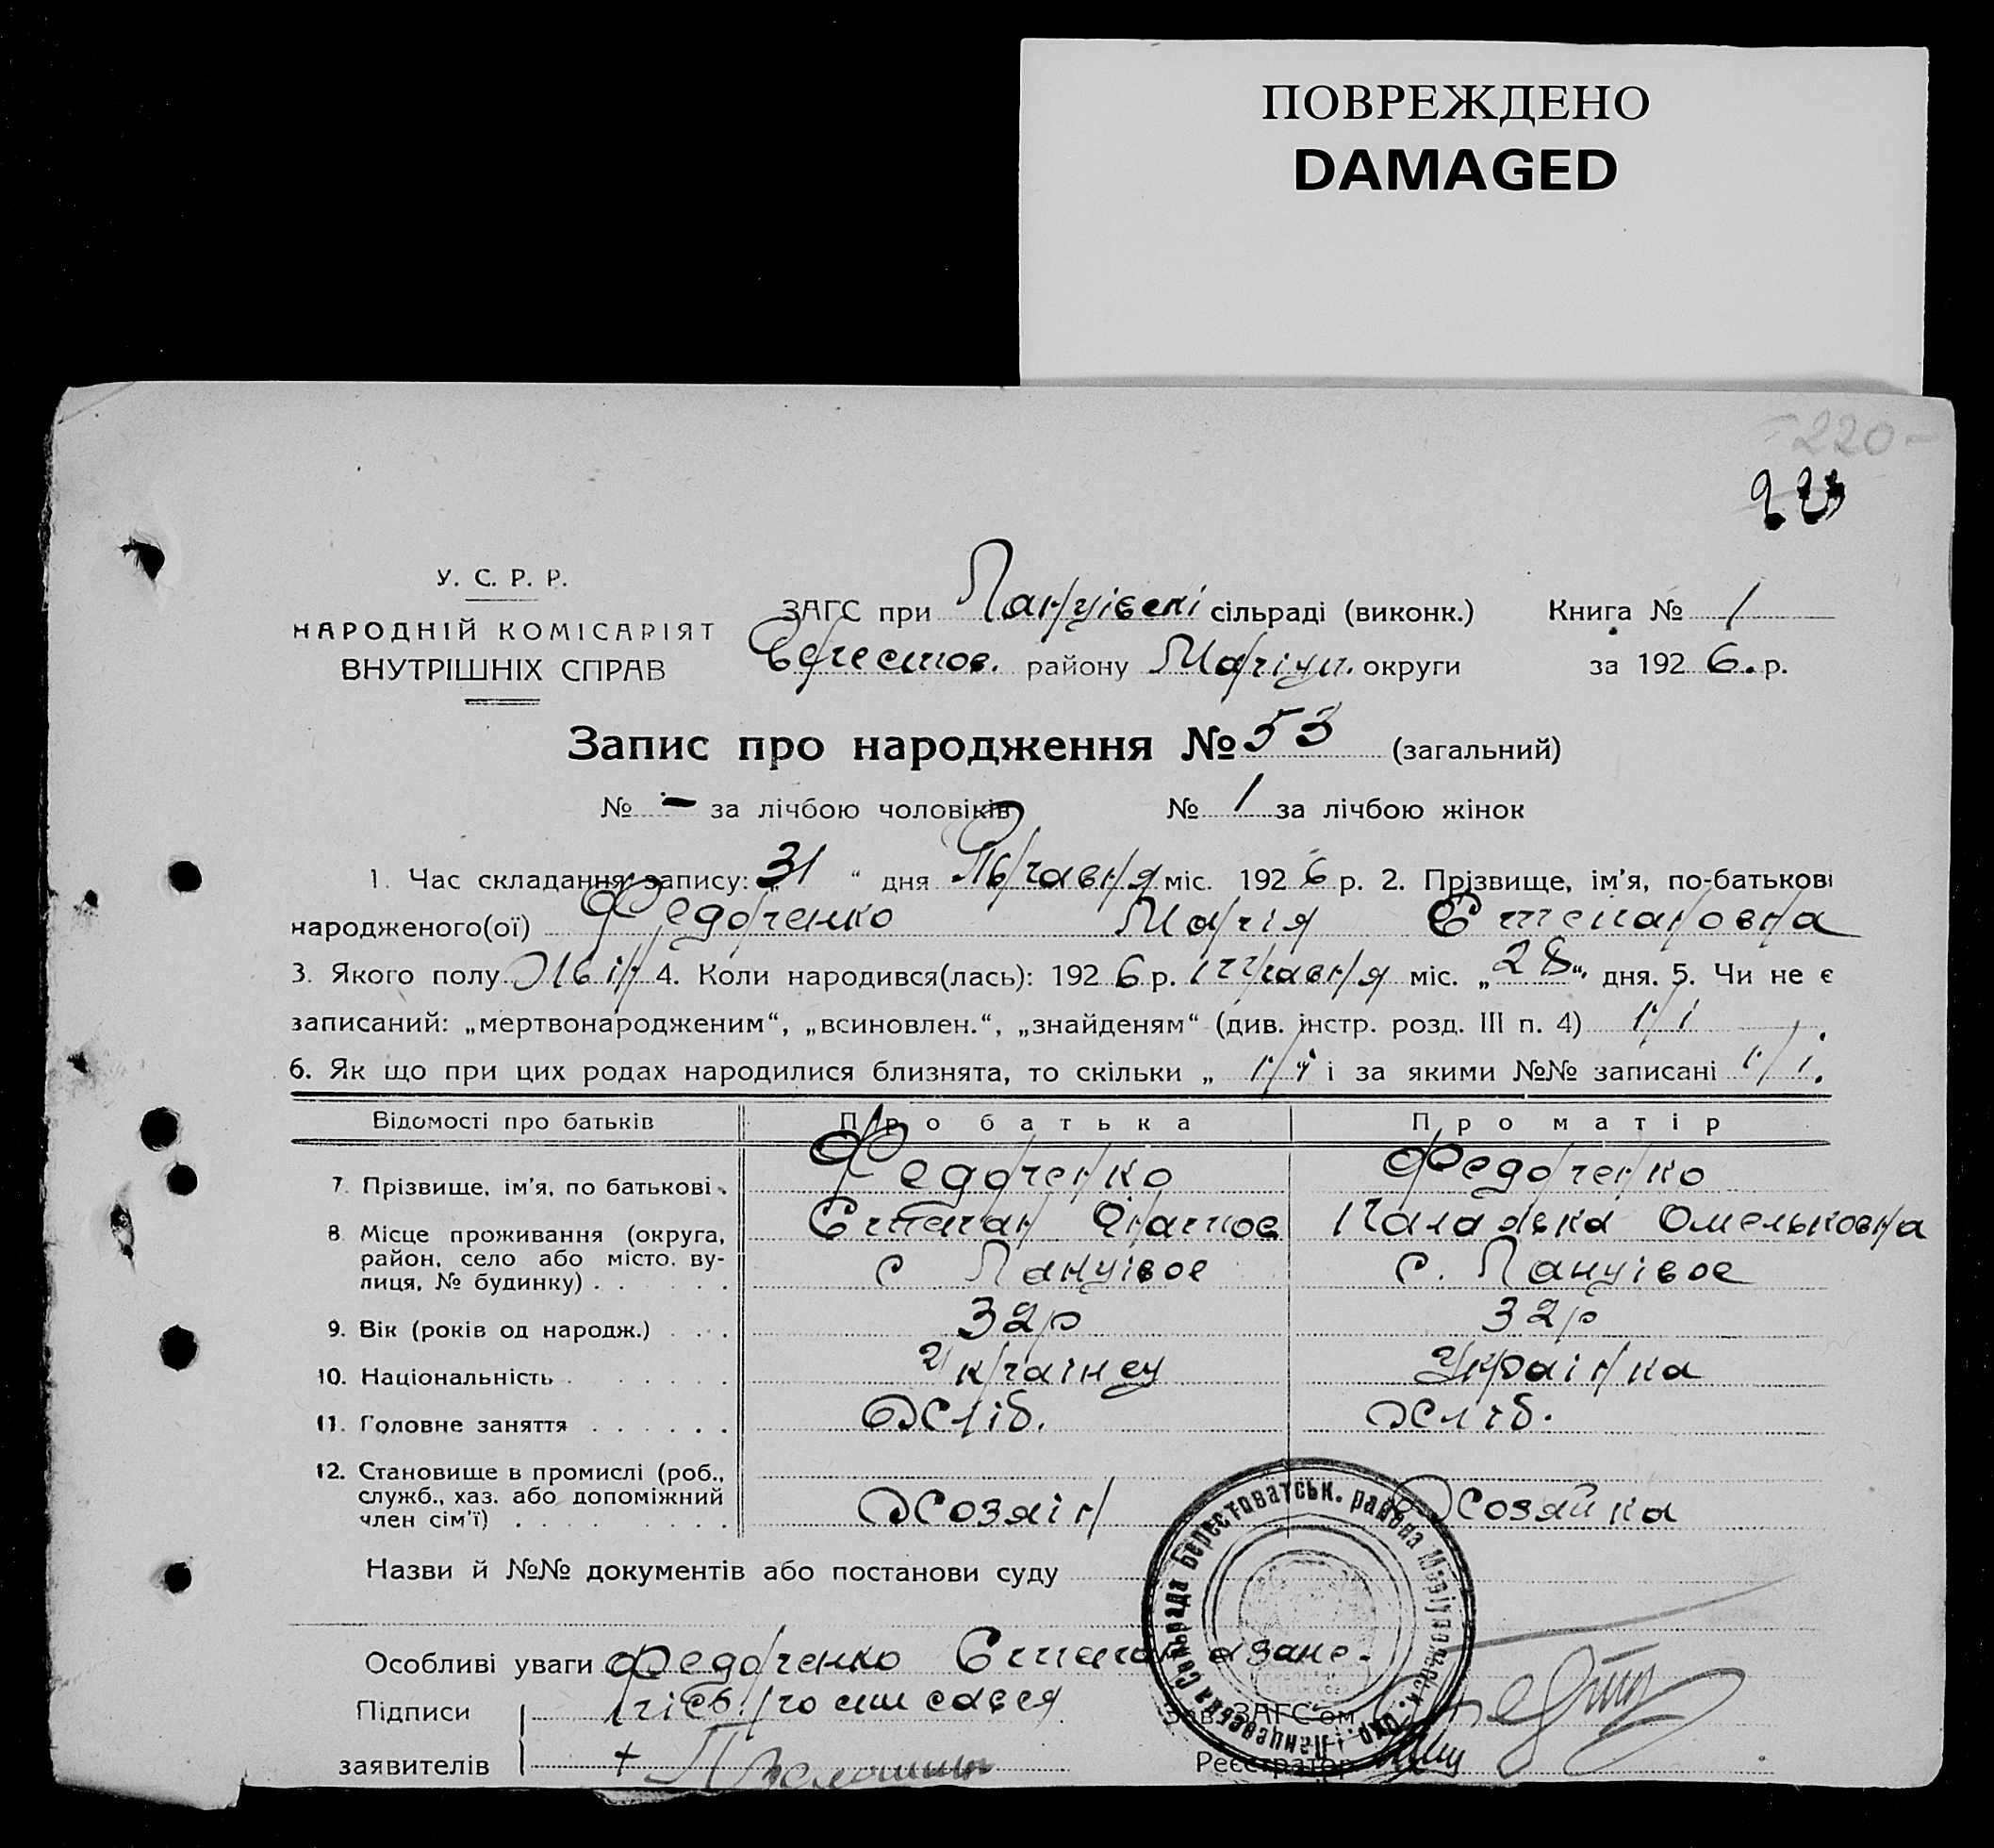 ПОВРЕЖДЕНО
DAMAGED
220
223
У. С. Р. Р.
НАРОДНІЙ КОМІСАРІЯТ
ВНУТРІШНІХ СПРАВ
ЗАГС при Ланцівскі сільраді (виконк.) Книга № 1
Берестов. району Маріуп. округи за 1926. р.
Запис про народження № 53 (загальний)
№ - за лічбою чоловіків № 1 за лічбою жінок
1. Час складання запису: „31“ дня Травня міс. 1926 р. 2. Прізвище, ім’я, по-батькові
народженого(ої) Федоренко Марія Степановна
3. Якого полу Жін 4. Коли народився(лась): 1926 р. Травня міс. „28“ дня. 5. Чи не є
записаний: „мертвонародженим“, „всиновлен.“, „знайденям“ (див. інстр. розд. III п. 4) Ні
6. Як що при цих родах народилися близнята, то скільки „ Ні і за якими №№ записані Ні.
Відомості про батьків Про батька Про матір
7. Прізвище, ім’я, по батькові. Федоренко Федоренко
Степан Гнатов Палажка Омельковна
8. Місце проживання (округа, район, село або місто, вулиця, № будинку) . . с Ланцівое с. Ланцівое
9. Вік (років од народж.) . . . 32р 32р
10. Національність . . . . . Українец Українка
11. Головне заняття . . . . . . Хліб. Хліб.
12. Становище в промислі (роб., служб., хаз. або допоміжний член сім’ї) . . . . . . Хозяін Хозяйка
Назви й №№ документів або постанови суду
Особливі уваги Федоренко Степан
Підписи
заявителів +
Зав. ЗАГС'ом
Реєстратор
Ланцевська Сельрада Берестоватськ. района Маріупольськ. окр.